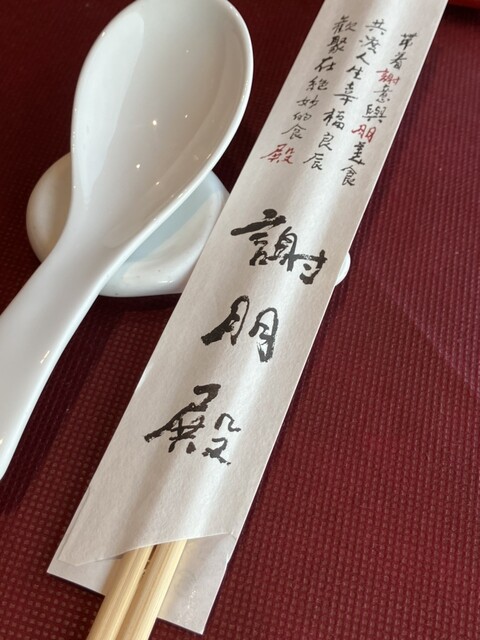 帶着謝意與朋美食
共渡人生幸福良辰
歡聚在絕妙的食殿
謝朋殿